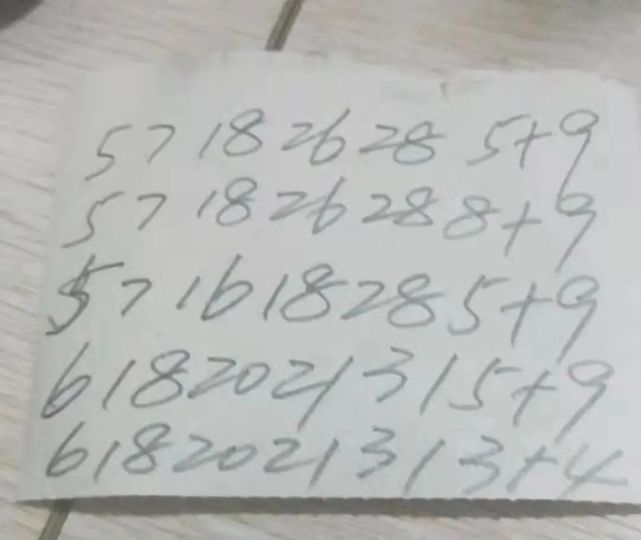 5 7 18 26 28 5+9
5 7 18 26 28 8+9
5 7 16 18 28 5+9
6 18 20 21 31 5+9
6 18 20 21 31 3+4